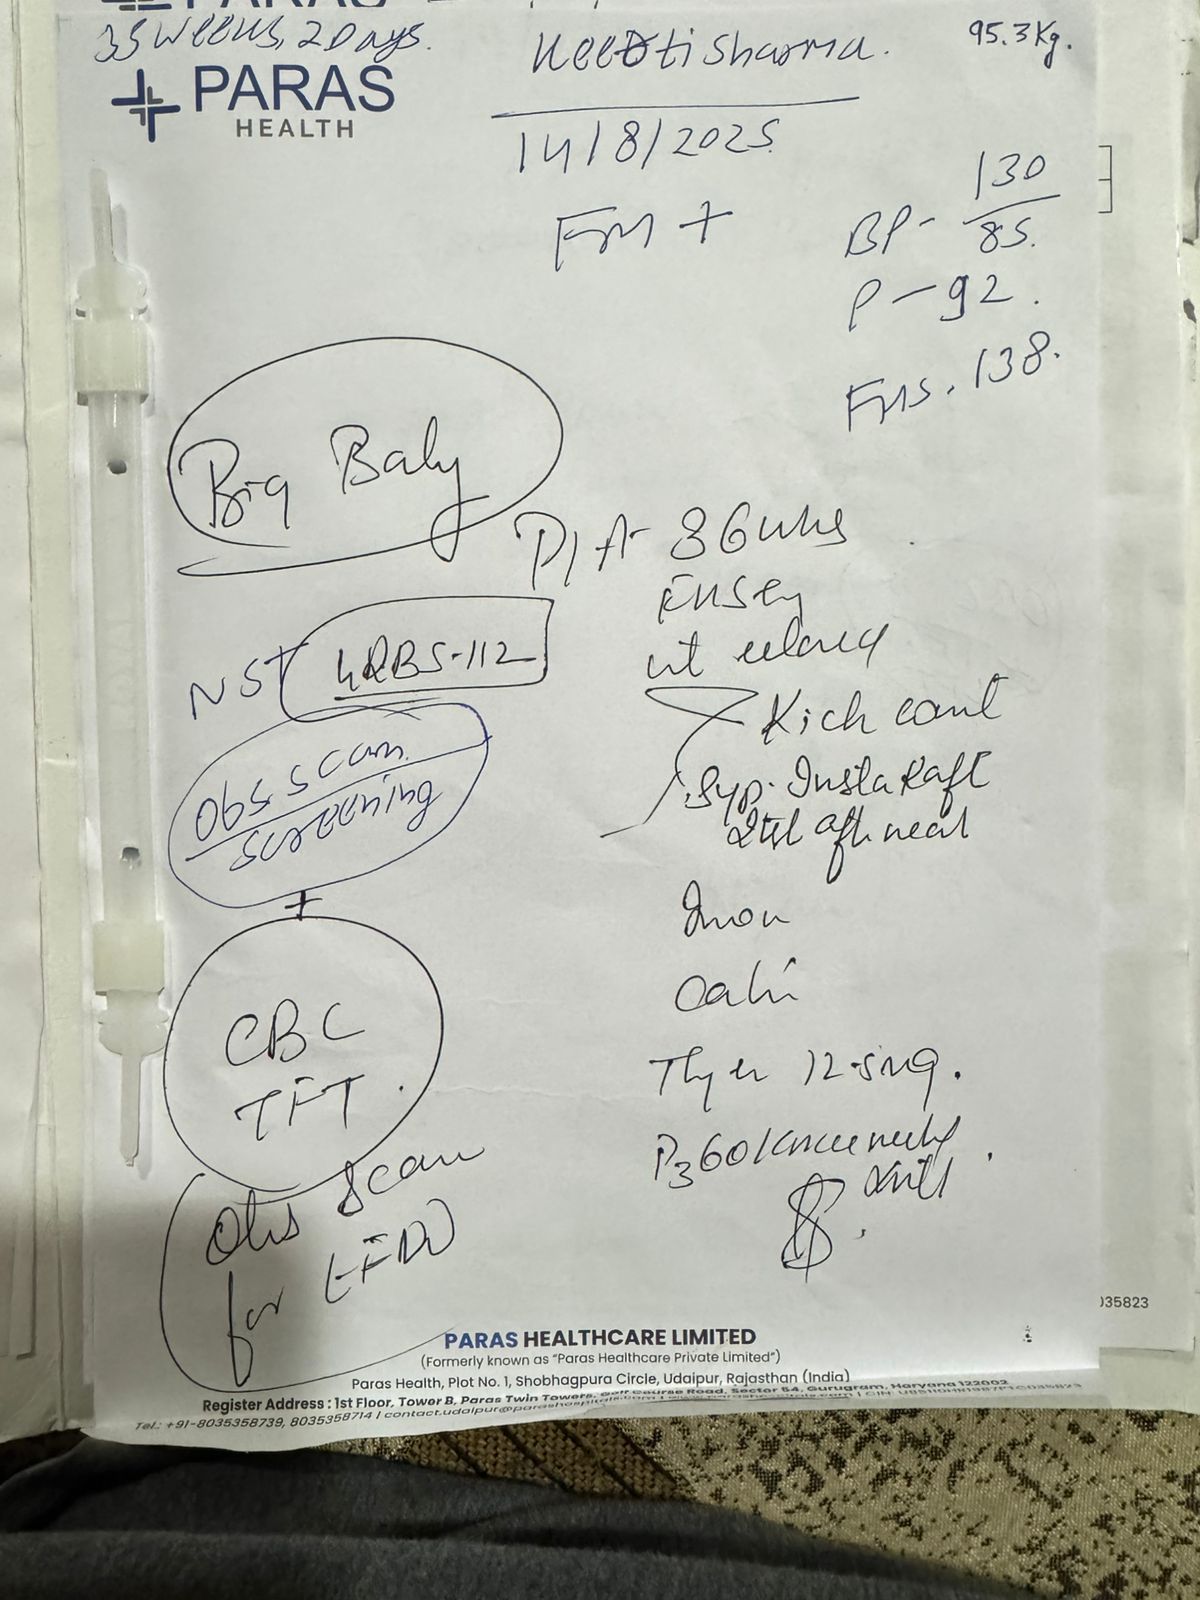 35 weeks, 2 Days.
Needti Sharma.
95.3 Kg.
PARAS
HEALTH
14/8/2025
FM +
BP - 130/85.
P - 92.
FHS. 138.
Big Baby
P/A - 36 wks
FHS
ut relaxed
NST
RBS-112
Kick count
Obs scan
screening
Syp. Insta Raft
2tsf aft meal
+
Iron
Calci
CBC
TFT.
12.5 mg.
Obs Scan
for EFW
P3 60K
035823
PARAS HEALTHCARE LIMITED
(Formerly known as “Paras Healthcare Private Limited”)
Paras Health, Plot No. 1, Shobhagpura Circle, Udaipur, Rajasthan (India)
Register Address : 1st Floor, Tower B, Paras Twin Towers, Golf Course Road, Sector 54, Gurugram, Haryana 122002
Tel.: +91-8035358739, 8035358714 | contact.udaipur@parashospitals.com